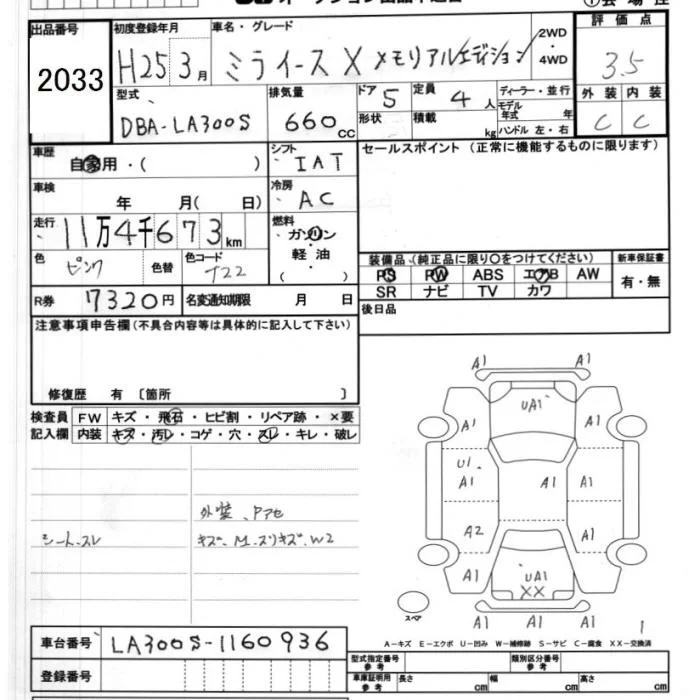 出品番号
2033
初度登録年月
H25 3月
車名・グレード
ミライース X メモリアルエディション
2WD
・
4WD
評価点
3.5
型式
DBA-LA300S
排気量
660cc
ドア 5
定員 4人
形状
積載 kg
ディーラー・並行
モデル年式 年
ハンドル 左・右
外装 内装
C C
車歴
自家用・( )
シフト
IAT
セールスポイント (正常に機能するものに限ります)
車検
年 月( 日)
冷房
AC
走行
11万4千673km
燃料
ガソリン
軽油
( )
色
ピンク
色替
色コード
T22
装備品 (純正品に限り○をつけてください)
新車保証書
PS PW ABS エアB AW
SR ナビ TV カワ
有・無
R券 7320円
名変通知期限 月 日
後日品
注意事項申告欄(不具合内容等は具体的に記入して下さい)
修復歴 有 〔箇所 〕
検査員 FW キズ・飛石・ヒビ割・リペア跡・×要
記入欄 内装 キズ・汚レ・コゲ・穴・スレ・キレ・破レ
シート.スレ
外装、Pアセ
キズ.M.スリキズ.W2
A1 A1
UA1
A1 A1
U1
A1 A1 A1
A2 A1
A1 UA1 A1
XX
スペア
A1 A1 A1
1
A-キズ E-エクボ U-凹み W-補修跡 S-サビ C-腐食 XX-交換済
車台番号 LA300S-1160936
登録番号
型式指定番号
参考
類別区分番号
参考
車庫証明用
参考
長さ cm 幅 cm 高さ cm